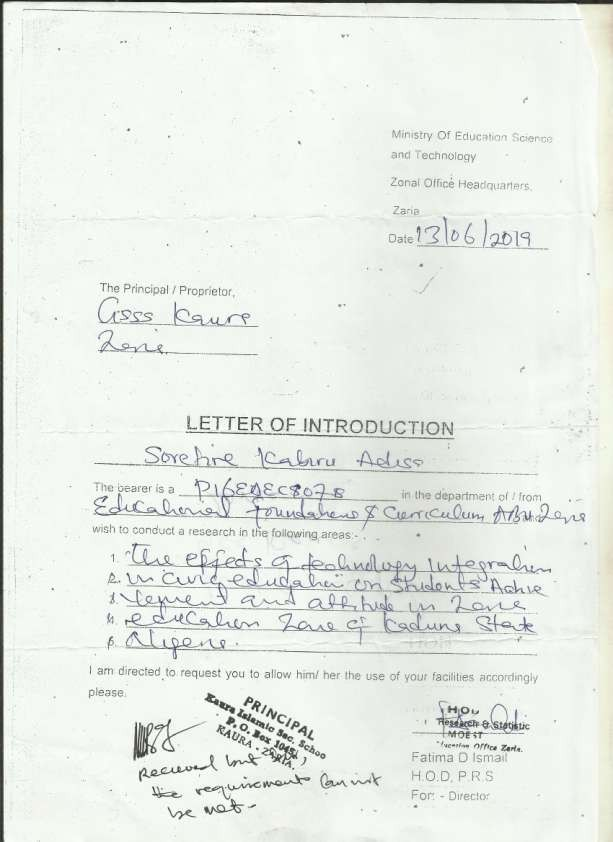 Ministry Of Education Science
and Technology
Zonal Office Headquarters,
Zaria
Date 13/06/2019
The Principal / Proprietor,
GSSS Kaura
Zaria
LETTER OF INTRODUCTION
Kabiru
The bearer is a P16EDEC8078 in the department of / from
Educational Foundations & Curriculum, ABU Zaria
wish to conduct a research in the following areas:-
1. The effects of technology Integration
2. in civic education on Students' Achie
3. vement and attitude in Zaria
4. education Zone of Kaduna State
5. Nigeria.
I am directed to request you to allow him/ her the use of your facilities accordingly
please.
PRINCIPAL
Kaura Islamic Sec. Schoo
P. O. Box 1045
KAURA - ZARIA.
Recieved but
the requirements cannot
be met-
H.O.D
Research & Statistic
MOEST
Education Office Zaria.
Fatima D Ismail
H.O.D, P.R.S
For: - Director